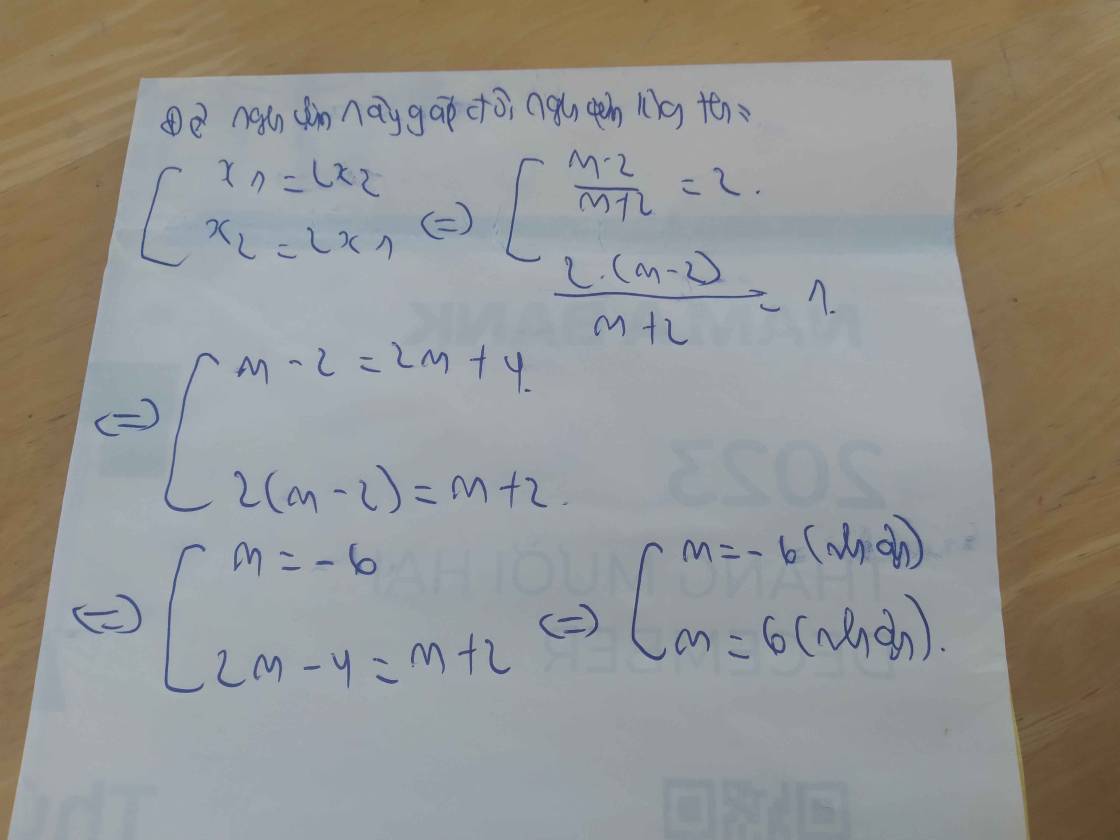 Để nghiệm này gấp đôi nghiệm kia thì:
[ x1 = 2x2
x2 = 2x1
<=> [ m-2/m+2 = 2.
2.(m-2)/m+2 = 1.
<=> [ m - 2 = 2m + 4.
2(m - 2) = m + 2.
<=> [ m = - 6
2m - 4 = m + 2
<=> [ m = - 6 (nhận)
m = 6 (nhận).
NAM A BANK
2023
THÁNG MƯỜI HAI
DECEMBER